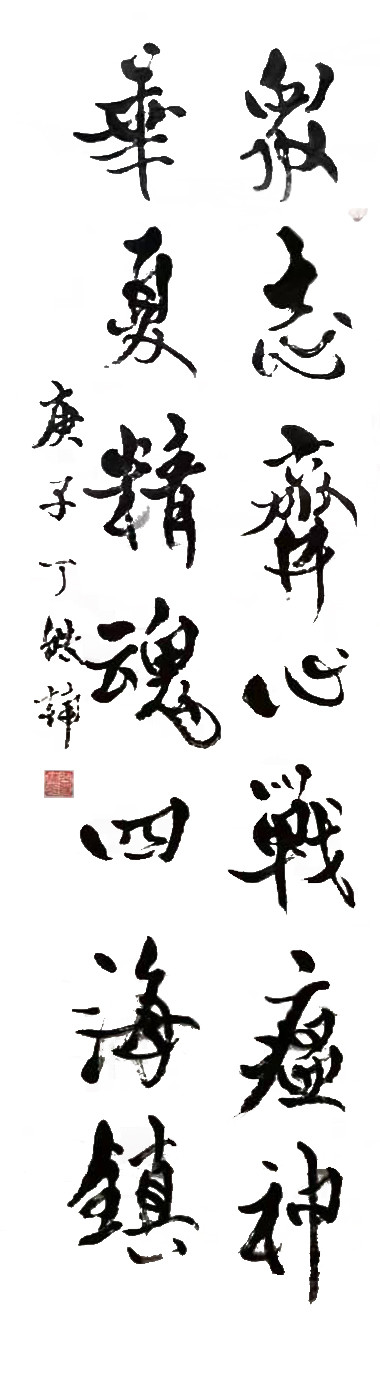 眾志齊心戰瘟神
華夏精魂四海鎮
庚子丁鉄韓